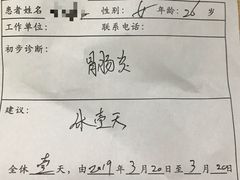 患者姓名 性别: 女 年龄: 26 岁
工作单位: 联系电话:
初步诊断:
胃肠炎
建议:
休壹天
全休 壹 天, 由2019年3月20日至3月20日